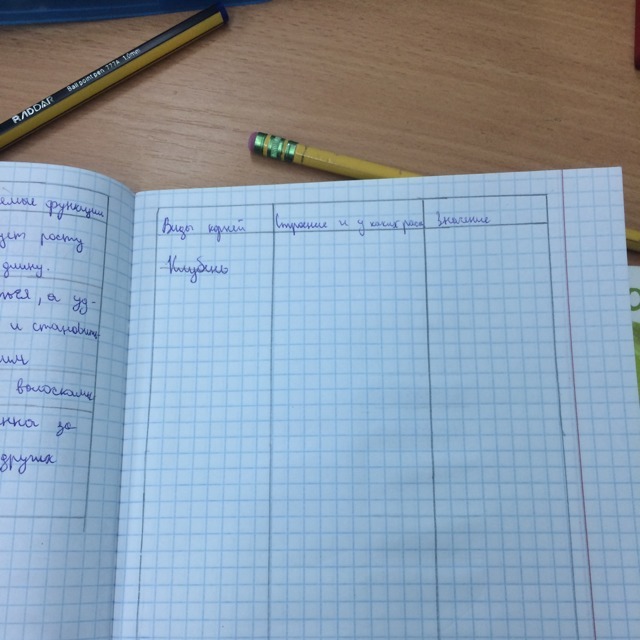 RADDAR Ballpoint pen 777A 1.0mm
емые функции
дет росту
длину.
ться, а уд-
и становит
ним
волосками
нна за
других
Виды корней
Строение и у каких рас
Значение
Клубень